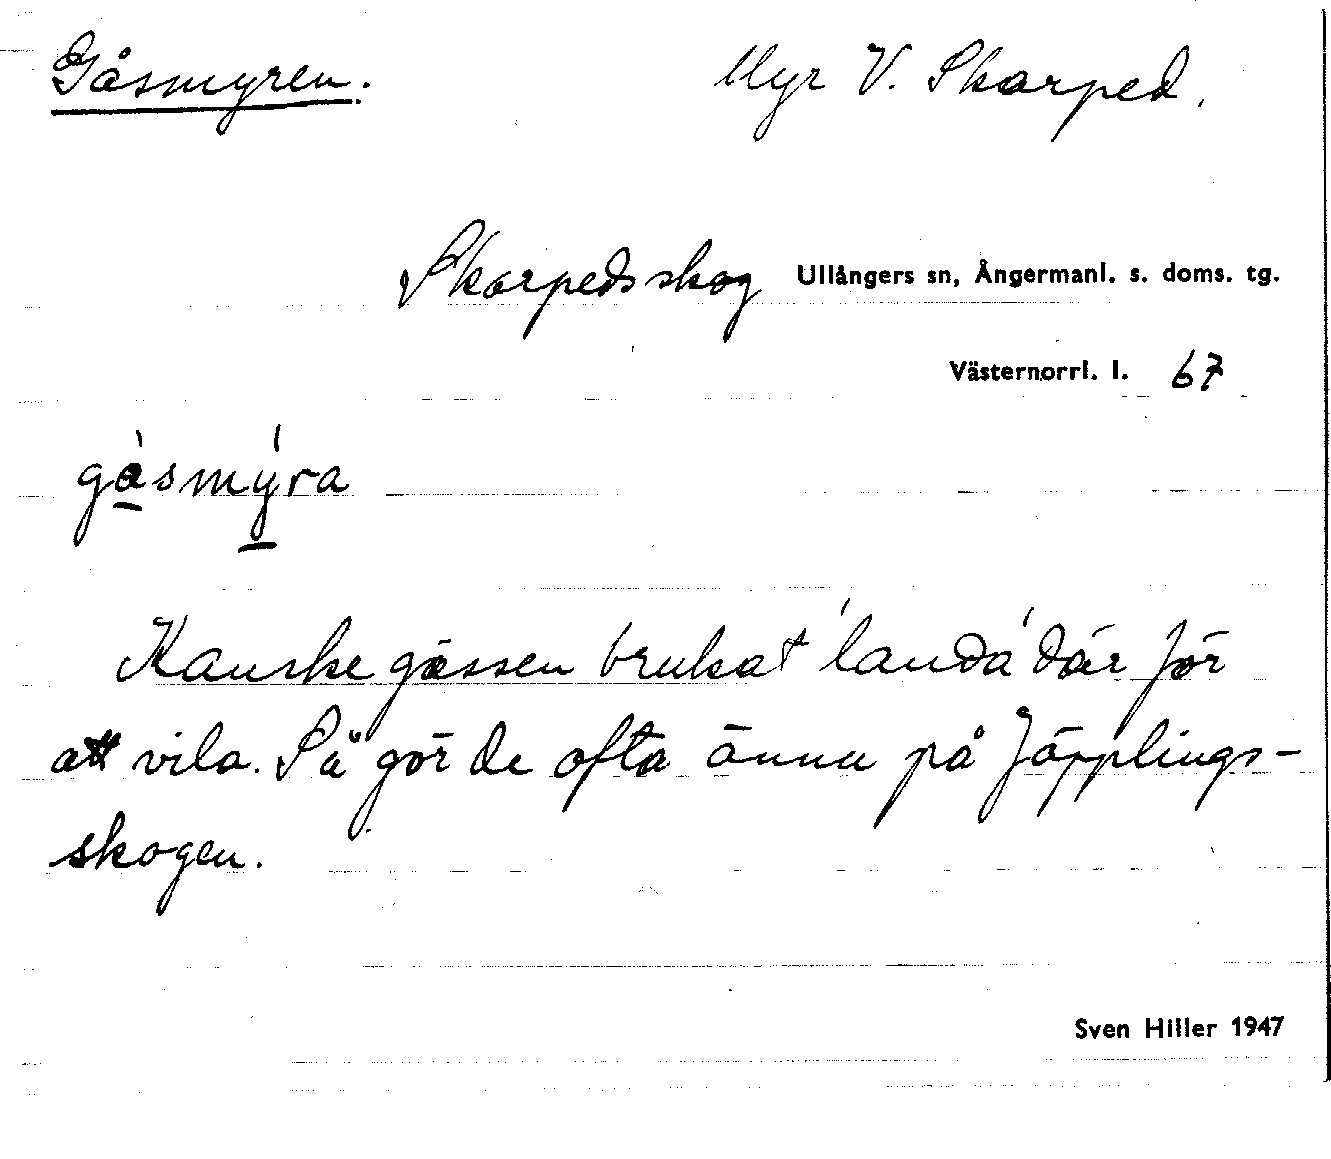 Gåsmyren. Myr V. Skarped.
Skarpedsskog Ullångers sn, Ångermanl. s. doms. tg.
Västernorrl. l. 67
gàsmýra
Kanske gässen brukat 'landa' där för
att vila. Så gör de ofta ännu på Jäpplings-
skogen.
Sven Hiller 1947